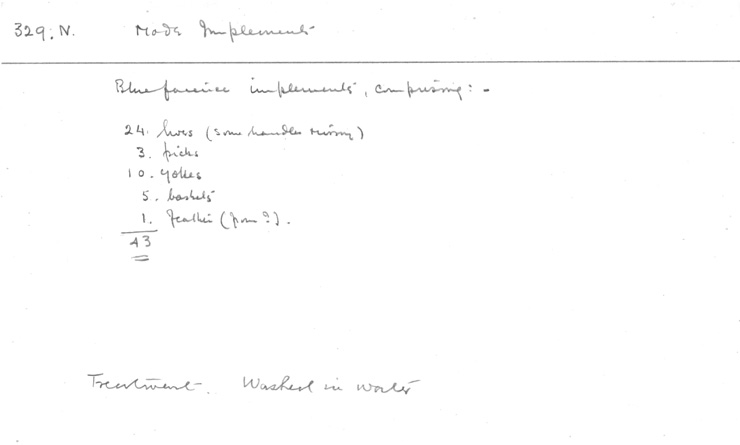 329. N. Model Implements
Blue faience implements, comprising: -
24. hoes (some handles missing)
3. picks
10. yokes
5. baskets
1. feather (from ?).
43
Treatment. Washed in water